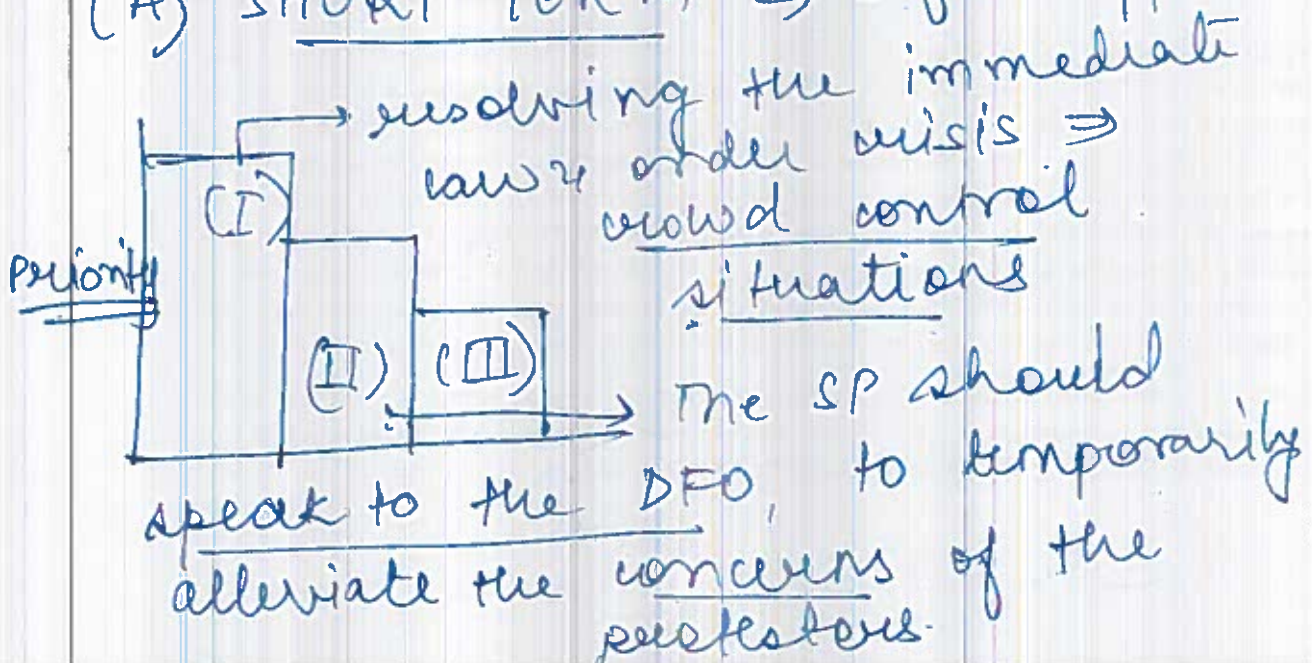 (A) SHORT TERM ⇒
→ resolving the immediate
law & order crisis ⇒
crowd control
situations
(I)
Priority
(II) (III)
→ The SP should
speak to the DFO, to temporarily
alleviate the concerns of the
protestors.